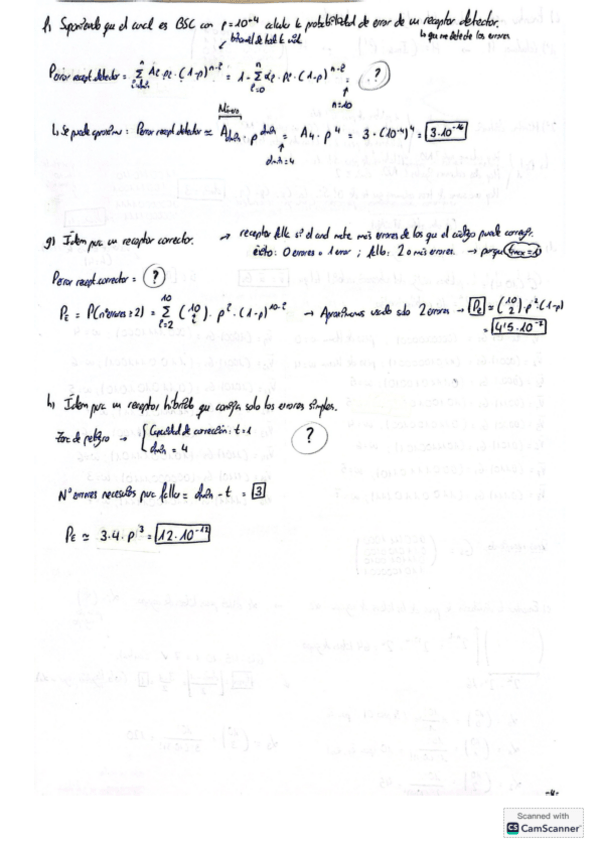 f) Suponiendo que el canal es BSC con p=10⁻⁴ calcular la probabilidad de error de un receptor detector.
la que no detecte los errores
Perror recept detector = Σ Ai · pⁱ · (1-p)ⁿ⁻ⁱ = 1 - Σ αi · pⁱ · (1-p)ⁿ⁻ⁱ = ?
n=10
Mínimo
Se puede aproximar: Perror recept detector ≈ A dmín · p^dmín = A₄ · p⁴ = 3 · (10⁻⁴)⁴ = 3·10⁻¹⁶
dmín=4
g) Ídem para un receptor corrector. → receptor falla si el canal mete más errores de los que el código puede corregir.
éxito: 0 errores o 1 error ; fallo: 2 o más errores. → porque
Perror recept corrector = ?
P_E = P(nºerrores ≥ 2) = Σ (10 i) · pⁱ · (1-p)¹⁰⁻ⁱ → Aproximamos usando solo 2 errores → P_E = (10 2) · p² · (1-p)
10
i=2
= 4'5·10⁻⁷
h) Ídem para un receptor híbrido que corrija solo los errores simples.
Zona de peligro → { Capacidad de corrección: t=1
dmín = 4
?
Nº errores necesarios para fallar = dmín - t = 3
P_E ≈ 3·4·p³ = 12·10⁻¹²
-4-
Scanned with
CS CamScanner